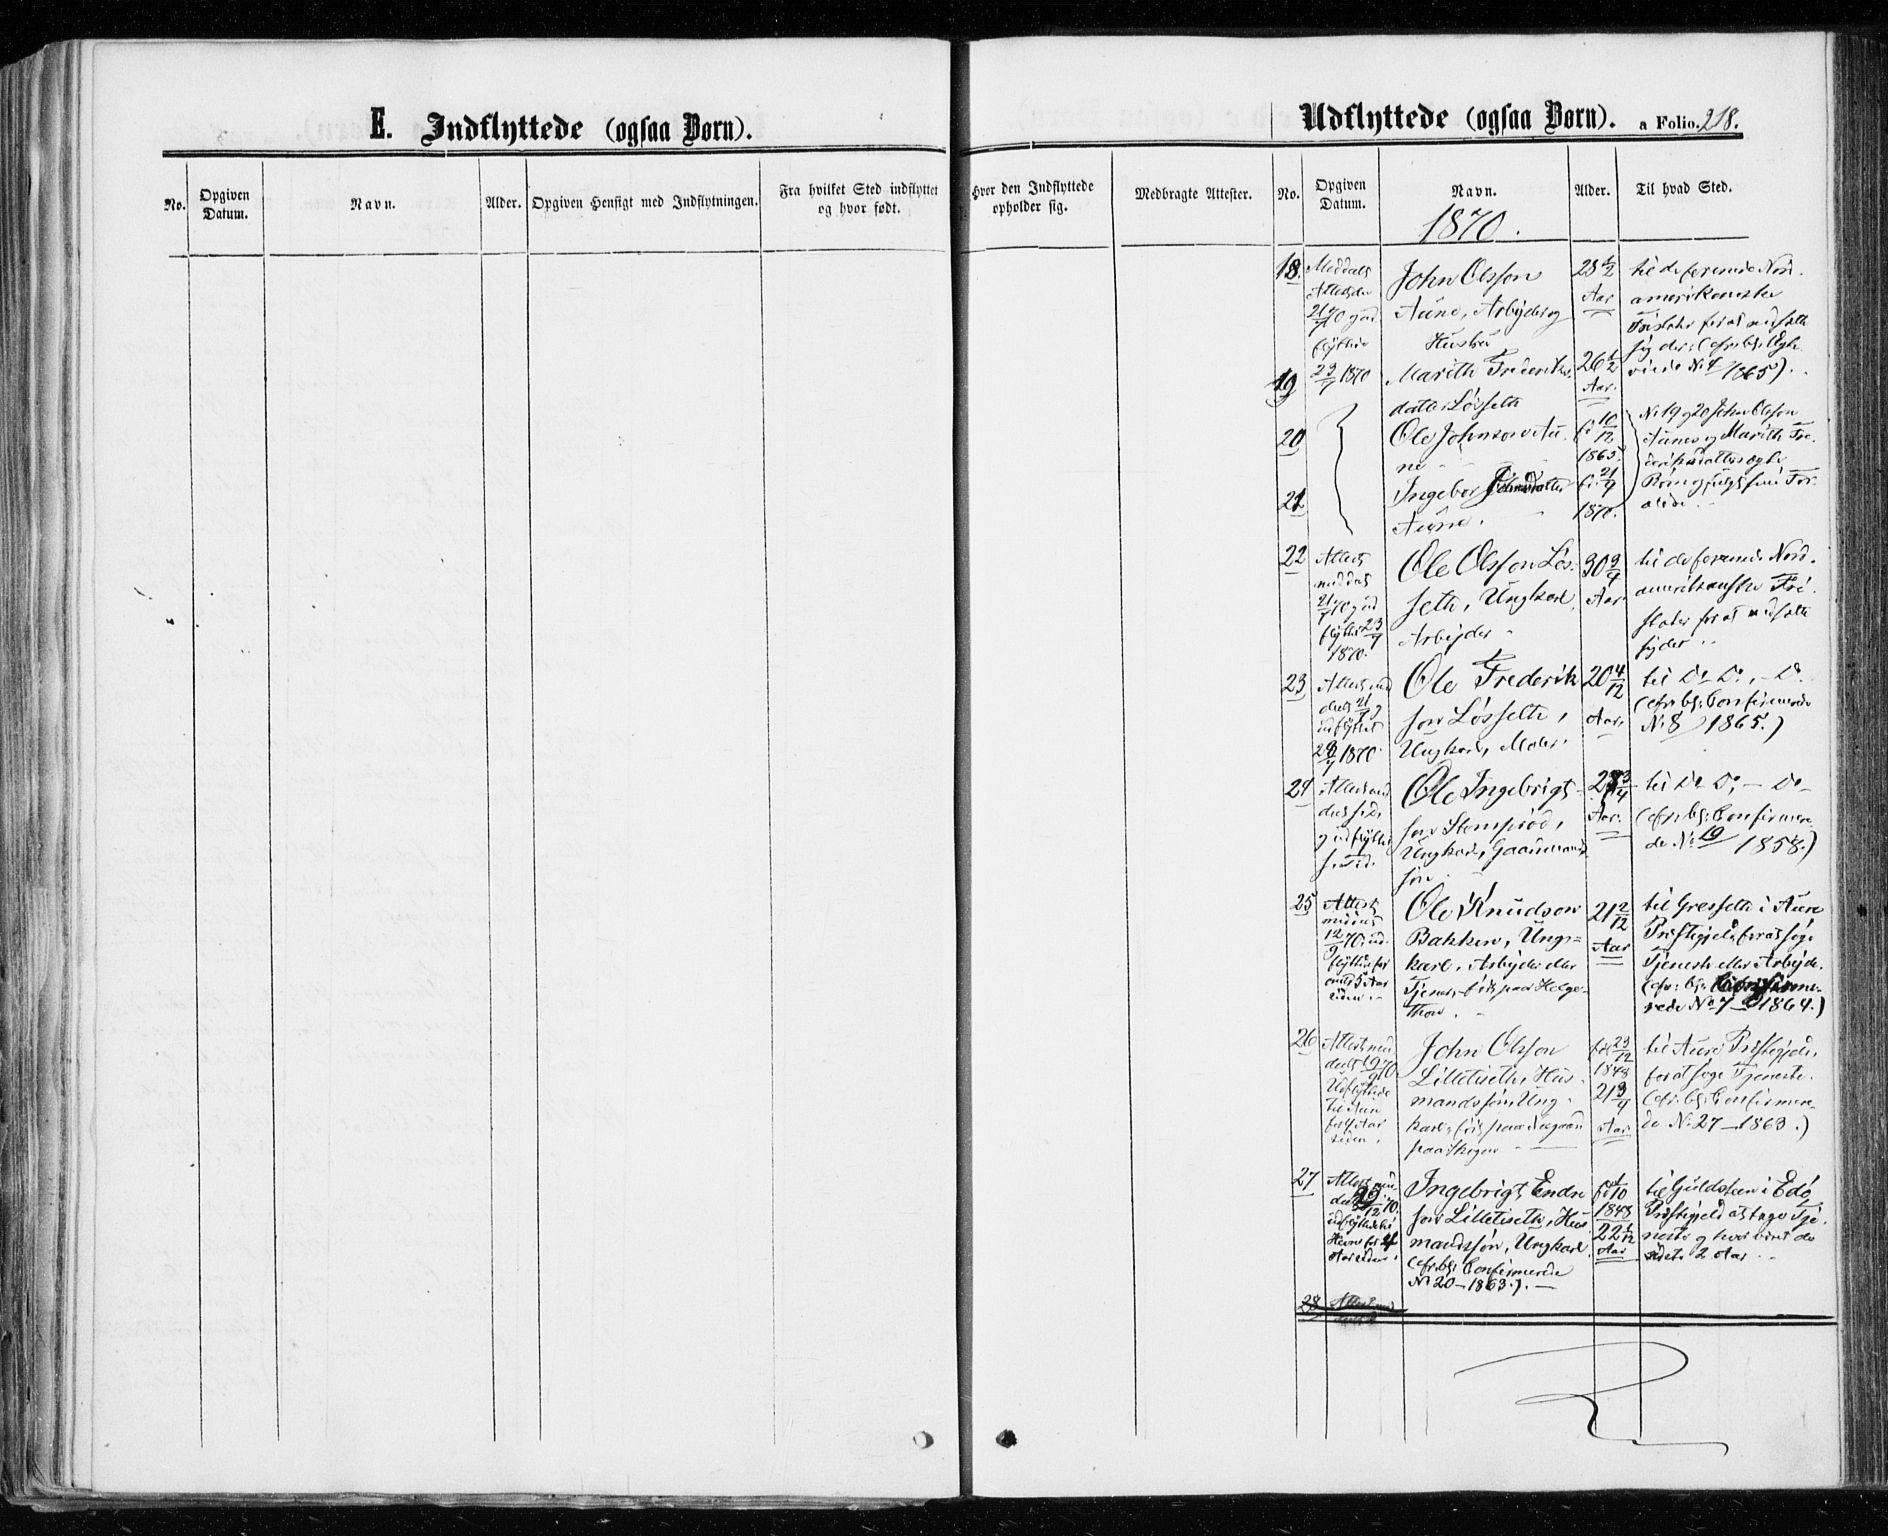 E. Indflyttede (ogsaa Børn).
No.
Opgiven Datum.
Navn.
Alder.
Opgiven Hensigt med Indflytningen.
Fra hvilket Sted indflyttet
og hvor født.
Hvor den Indflyttede
opholder sig.
Medbragte Attester.
Udflyttede (ogsaa Børn). a Folio. 218.
No.
Opgiven Datum.
Navn.
Alder.
Til hvad Sted.
1870.
18.
John Olsson
Aune, Arbeider og
Hustru
Aar
til de forenede Nord-
amerikanske
Fristater for at nedsætte
sig der
1865).
19
23/7 1870
Marith Frederiks-
datter Løsseth
26 1/2
Aar.
20
Ole Johnson Au-
ne
10/12
1865
No 19 og 20 John Olsson
Aunes og Marith Fre-
deriksdatters ægte
Børn
21
Ingebor Johnsdatter
Aune.
1870.
22
Attest
meddelt
21/7 70 og ud-
flyttet 23/7
1870.
Ole Olsson Løs-
seth, Ungkarl,
Arbeider
30 3/4
Aar
til de forenede Nord-
amerikanske Fri-
stater for at nedsætte
sig der
23
Attest med-
delt 21/7 og
udflyttet
23/7 1870.
Ole Frederik-
son Løsseth,
Ungkarl, Maler.
20 4/12
Aar.
til Do Do, - Do.
(cfr. bl: Confirmerede
No 8 / 1865.)
24
Attest med-
delt s. D.
og udflyttet
Ole Ingebrigt-
son Stomprød,
Ungkarl, Gaardmands-
søn.
Aar.
til Do Do, - Do -
(cfr. bl: Confirmere-
de No 19 / 1858.)
25
Attest
meddelt
12/9 70, ud-
flyttet for
Aar
siden.
Ole Knudson
Bakken, Ung-
karl, Arbeider eller
Tjener, født paa Helge-
thon.
21 2/12
Aar
til Gresseth i Aure
Præstegjeld for at søge
Tjeneste eller Arbeide.
(cfr. bl: Confirme-
rede No 7 - 1864.)
26
Attest med-
delt 19/9 70.
Udflyttede
til Aure
for Aar
siden.
John Olsson
Lilletiseth, Hus-
mandssøn, Ung-
karl, født paa
paa Skogen
fød 23/12
1848
21 3/4
Aar
til Aure Præstegjeld,
for at søge Tjeneste.
(cfr. bl: Confirmere-
de No 27 - 1863.)
27
Attest med-
delt
udflyttede til
Hevne for
Aar siden.
Ingebrigt Endre-
son Lilletiseth, Hus-
mandssøn, Ungkarl
(cfr. bl: Confirmerede
No 20 - 1863.). -
1848
Aar
til Guldsteen i Edø
Præstegjeld at tage Tje-
neste og har været der
sidste 2 Aar.
28
Attest med-
delt